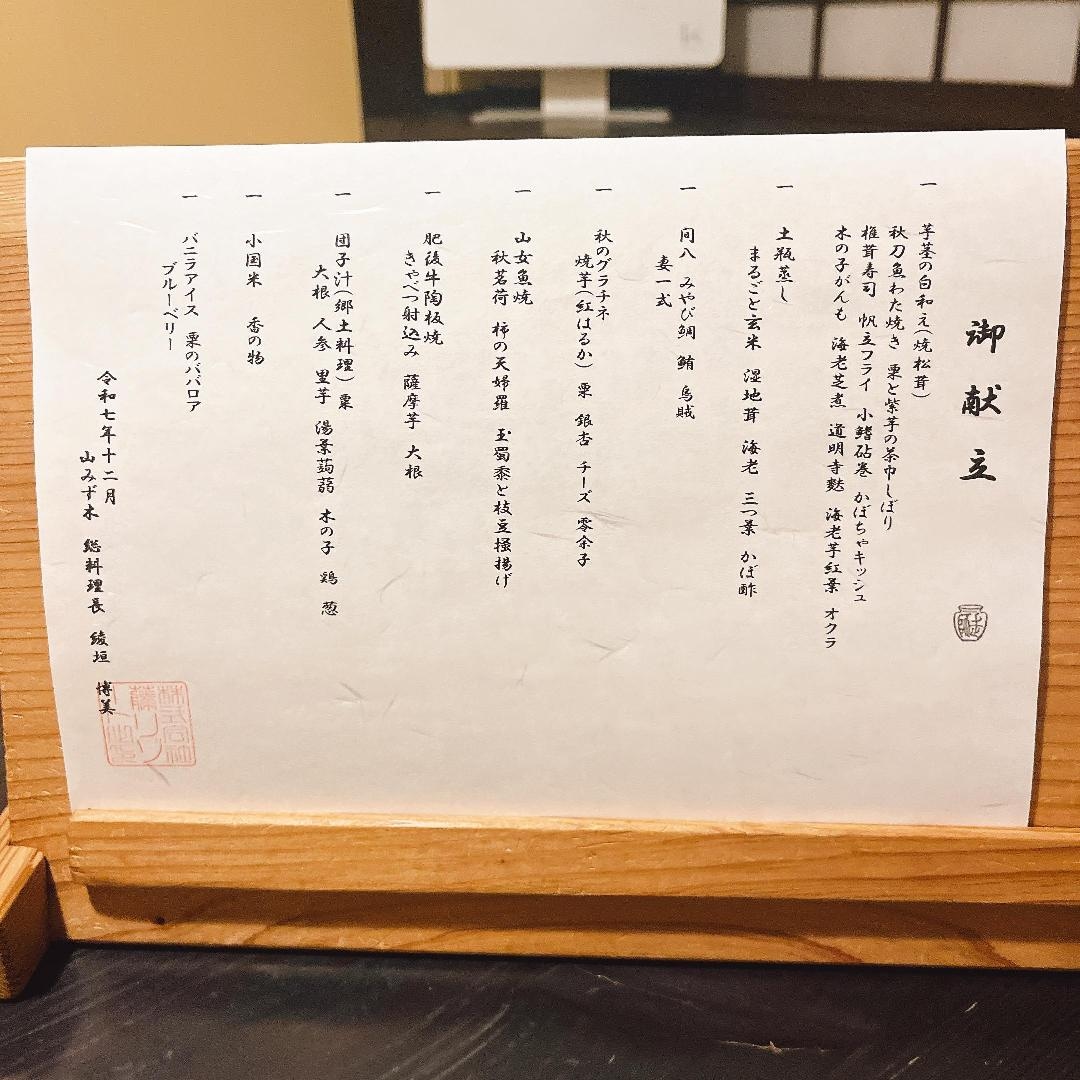 御献立
一
芋茎の白和え(焼松茸)
秋刀魚わた焼き 栗と紫芋の茶巾しぼり
椎茸寿司 帆立フライ 小鰭砧巻 かぼちゃキッシュ
木の子がんも 海老芝煮 道明寺麩 海老芋紅葉 オクラ
一
土瓶蒸し
まるごと玄米 湿地茸 海老 三つ葉 かぼ酢
一
間八 みやび鯛 鮪 烏賊
妻一式
一
秋のグラチネ
焼芋(紅はるか) 栗 銀杏 チーズ 零余子
一
山女魚焼
秋茗荷 柿の天婦羅 玉蜀黍と枝豆掻揚げ
一
肥後牛陶板焼
きゃべつ射込み 薩摩芋 大根
一
団子汁(郷土料理) 粟
大根 人参 里芋 湯葉蒟蒻 木の子 鶏 葱
一
小国米 香の物
一
バニラアイス 栗のババロア
ブルーベリー
令和七年十二月
山みず木 総料理長 綾垣 博美
株式会社